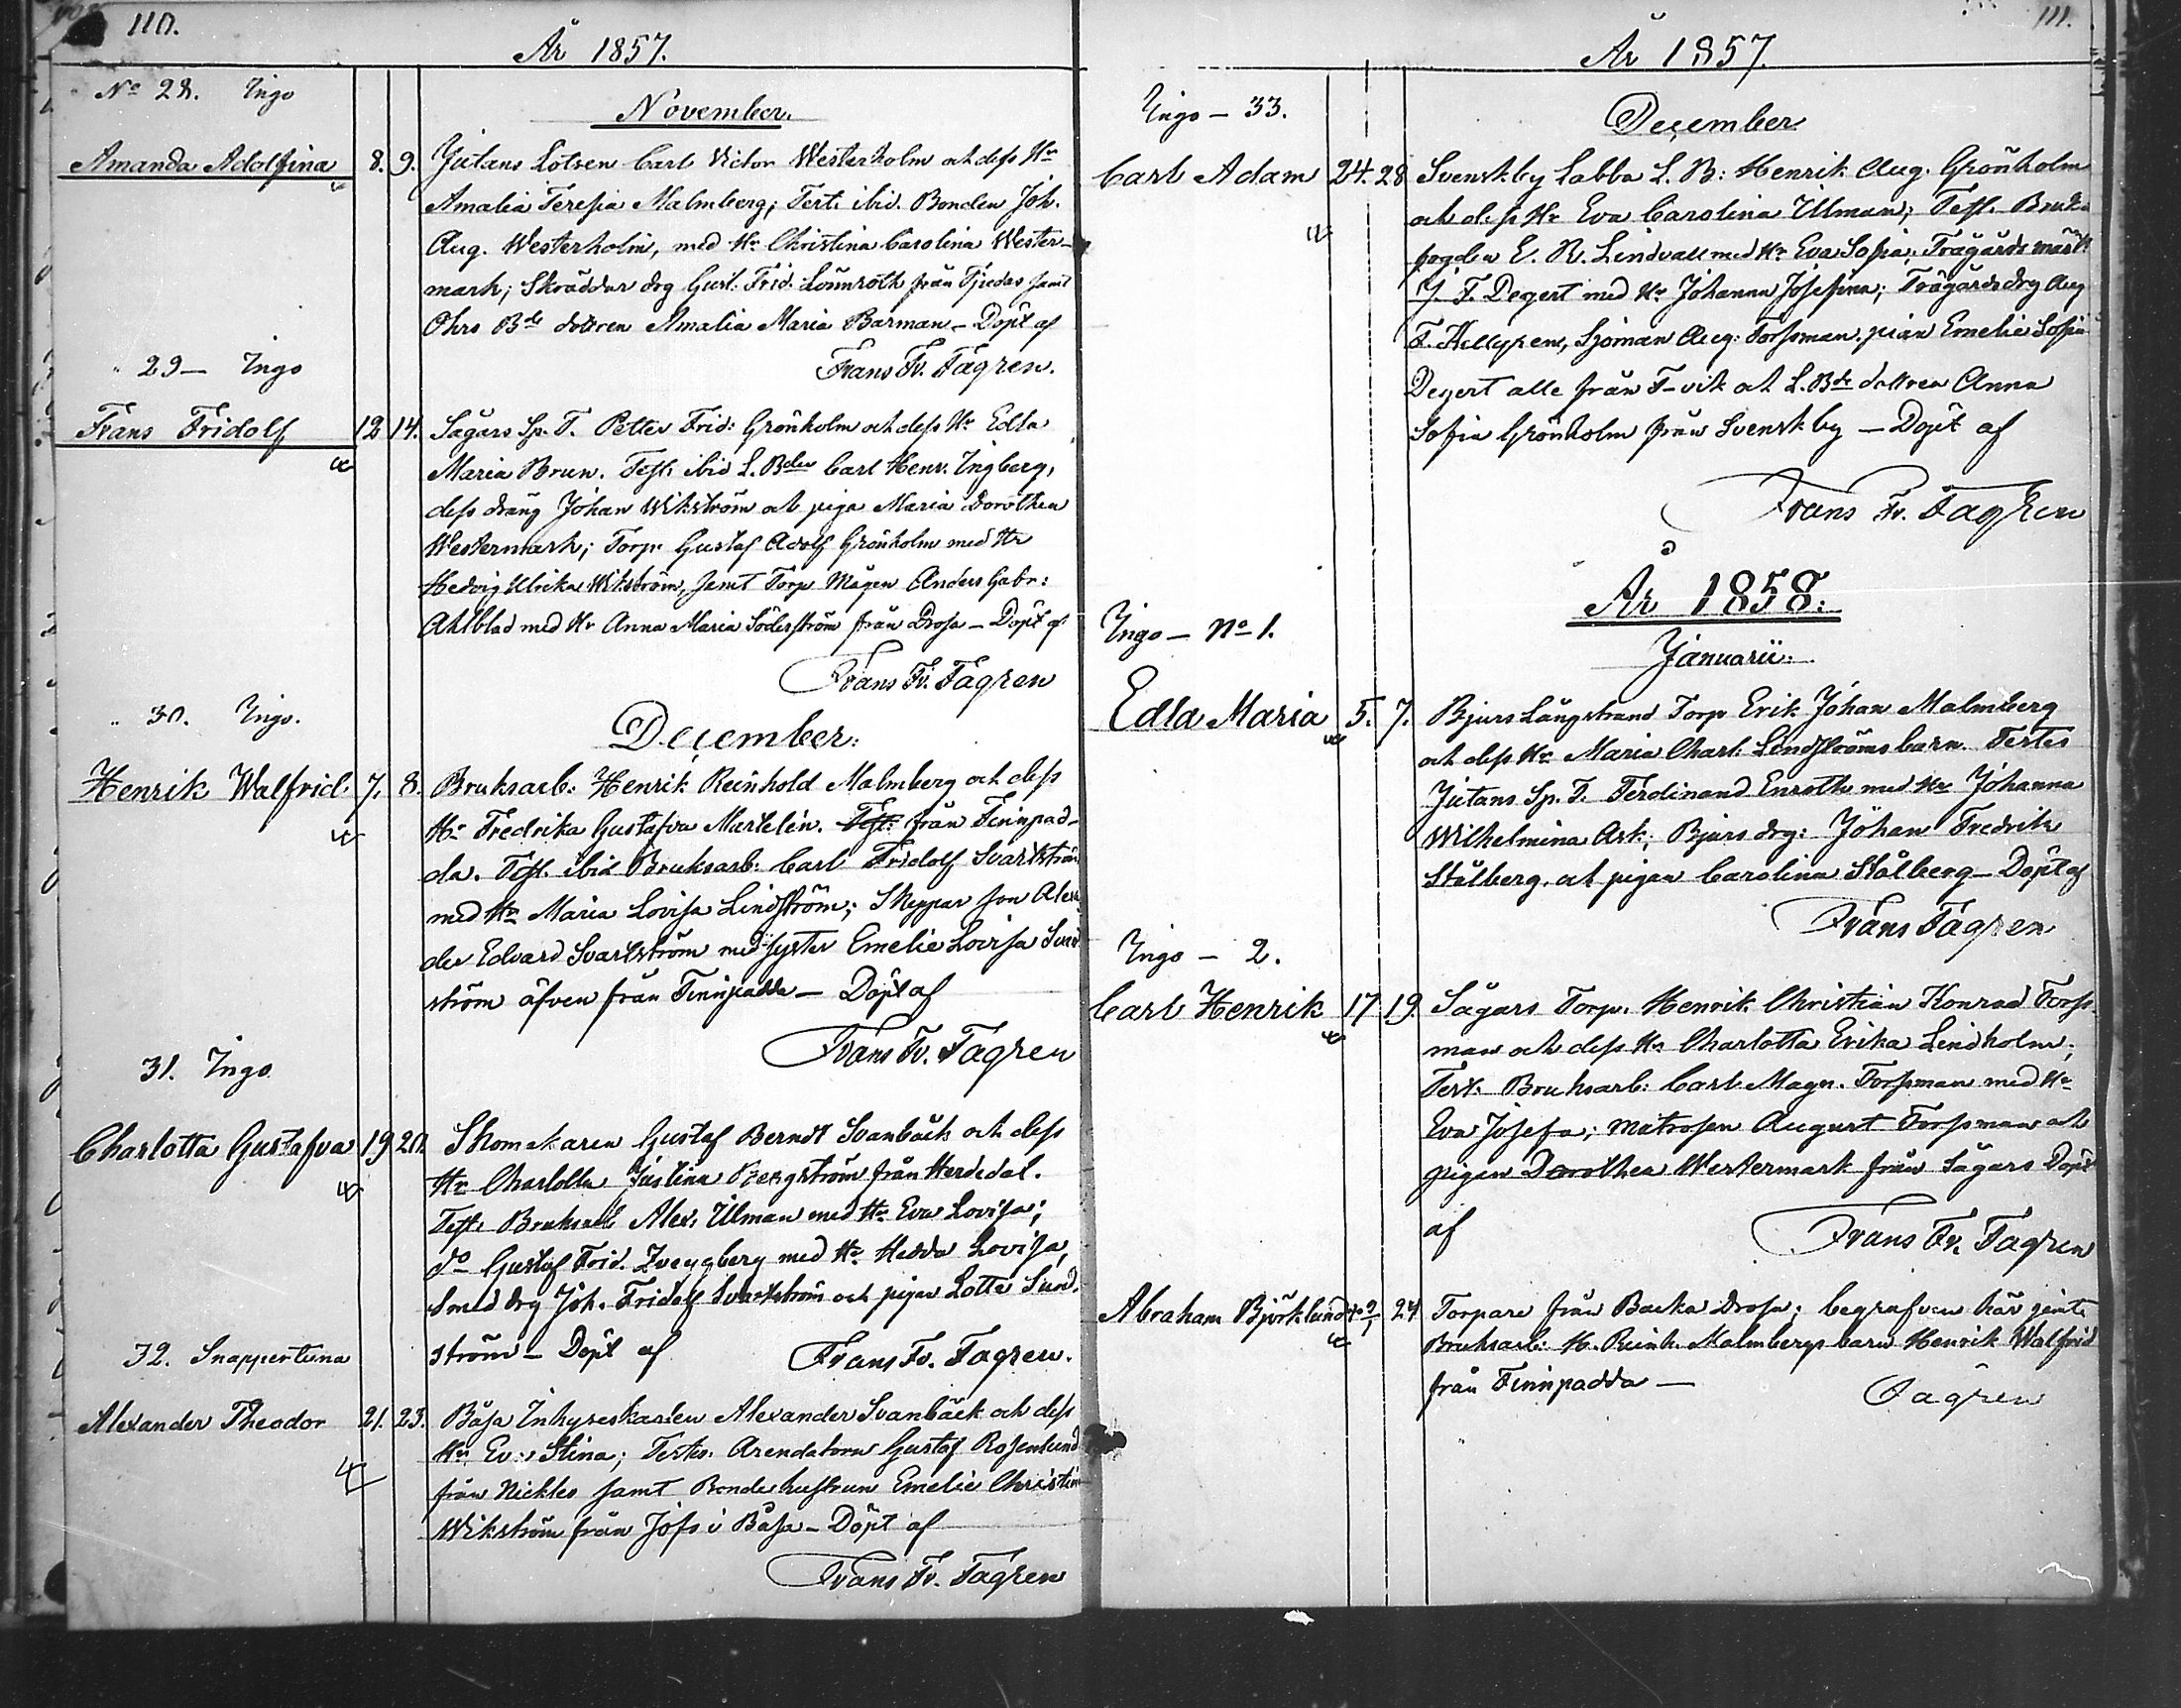 110.
År 1857.
No 28. Ingo
November.
Amanda Adolfina 8. 9. Jutans Lotsen Carl Victor Westerholm och dess Hu
Amalia Teresia Malmberg; Test. ibid. Bonden Joh.
Aug. Westerholm, med Hu Christina Carolina Wester-
mark; Skräddar drg Gust. Frid. Lönnroth från samt
Ohrs Bde dottren Amalia Maria Barman – Döpt af
Frans Fr. Fagren.
" 29 – Ingo
Frans Fridolf 12 14. Sågars Sp. T. Petter Frid: Grönholm och dess Hu Edla
Maria Brun. Test. ibid L. Bden Carl Henr. Ingberg,
dess dräng Johan Wikström och piga Maria Dorothea
Westermark; Torp. Gustaf Adolf Grönholm med Hu
Hedvig Ulrika Wikström, samt Torp Mågen Anders Gabr:
Ahlblad med Hu Anna Maria Söderström från Drosa – Döpt af
Frans Fr. Fagren
" 30. Ingo.
December:
Henrik Walfrid. 7. 8. Bruksarb: Henrik Reinhold Malmberg och dess
Hu Fredrika Gustafva Murtelin. Test: från Finnpad-
da. Test. ibid Bruksarb: Carl Fridolf Svartström
med Hu Maria Lovisa Lindström; Skeppar son Alex
der Edvard Svartström med syster Emelie Lovisa Svart
ström äfven från Finnpadda – Döpt af
Frans Fr. Fagren
31. Ingo
Charlotta Gustafva 19 20. Skomakaren Gustaf Berndt Svanbäck och dess
Hu Charlotta Justina Bergström från Herdedal.
Test. Bruksarb Alex. Ulman med Hu Eva Lovisa;
do Gustaf Frid. Zveygberg med Hu Hedda Lovisa,
Smed drg Joh. Fridolf Svartström och pigan Lotta Sund-
ström – Döpt af Frans Fr. Fagren.
32. Snappertuna
Alexander Theodor 21. 23. Båsa Inhyseskarlen Alexander Svanbäck och dess
Hu Eva Stina; Testes. Arendatorn Gustaf Rosenlund
från Nickles samt Bondehustrun Emelie Christin
Wikström från Jofs i Båsa – Döpt af
Frans Fr. Fagren
111.
År 1857.
Ingo – 33.
December
Carl Adam 24. 28 Svenskby Labba L. B: Henrik Aug. Grönholm
och dess Hu Eva Carolina Ulman; Test. Bruks
fogden E. R. Lindvall med Hu Eva Sofia; Trägårds mäst
J. F. Degert med Hu Johanna Josefina; Trägårds drg Aug
F. Kellgren, Sjöman Aug: Forssman. pian Emelie Sofia
Degert alle från F–vik och L. Bde dottren Anna
Sofia Grönholm från Svenskby – Döpt af
Frans Fr. Fagren
År 1858.
Ingo – No 1.
Januarii.
Edla Maria 5. 7. Bjurs Långstrand Torp Erik Johan Malmberg
och dess Hu Maria Charl. Lindströms barn. Testes
Jutans Sp. T. Ferdinand Enroth med Hu Johanna
Wilhelmina Ask; Bjurs drg: Johan Fredrik
Stålberg, och pigan Carolina Stålberg – Döpt af
Frans Fagren
Ingo – 2.
Carl Henrik 17 19 Sågars Torp. Henrik Christian Konrad Forss
man och dess Hu Charlotta Erika Lindholm;
Test. Bruksarb: Carl Magn. Forssman med Hu
Eva Josefa; matrosen August Forssman och
pigan Dorothea Westermark från Sågars Döpt
af Frans Fr. Fagren
Abraham Björklund 24 Torpare från Backa Drosa; begrafven här jemte
Bruksarb: H. Reinh. Malmbergs barn Henrik Walfrid
från Finnpadda –
Fagren